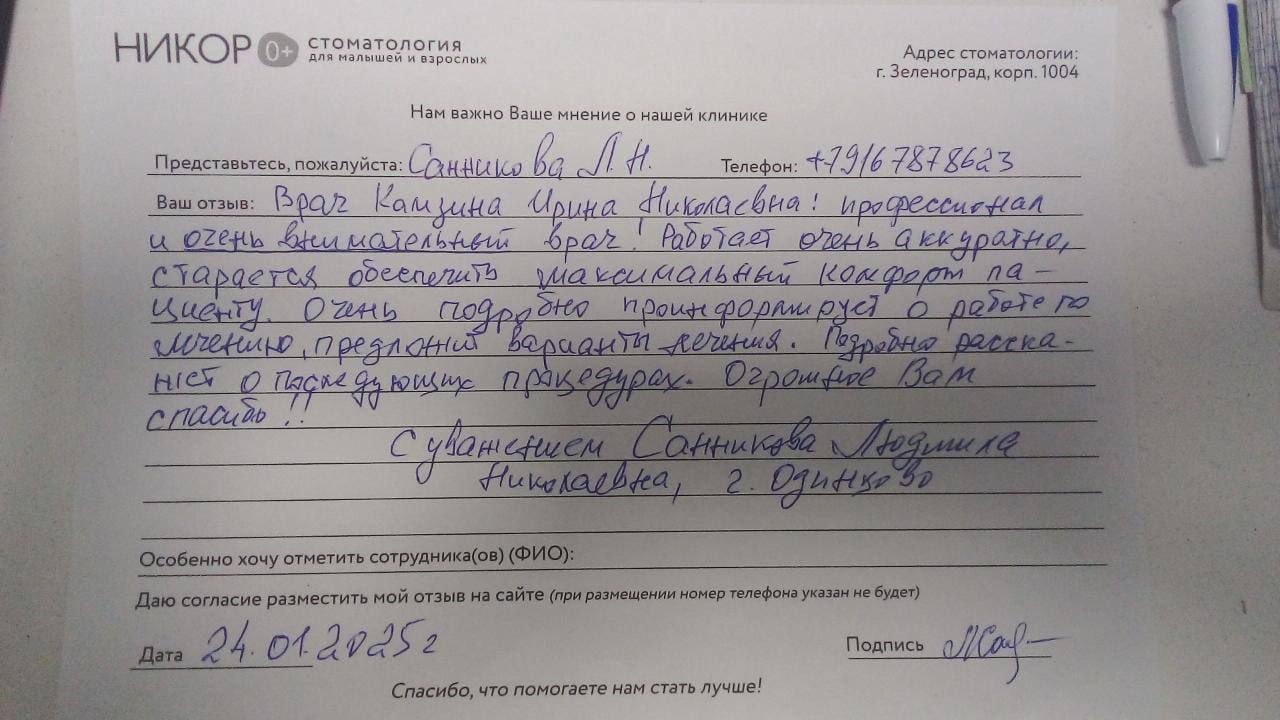 НИКОР 0+ стоматология
для малышей и взрослых
Адрес стоматологии:
г. Зеленоград, корп. 1004
Нам важно Ваше мнение о нашей клинике
Представьтесь, пожалуйста: Санникова Л.Н. Телефон: +79167878623
Ваш отзыв: Врач Камзина Ирина Николаевна! профессионал
и очень внимательный врач! Работает очень аккуратно,
старается обеспечить максимальный комфорт па-
циенту. Очень подробно проинформирует о работе по
лечению, предложит варианты лечения. Подробно расска-
жет о последующих процедурах. Огромное Вам
спасибо!!
С уважением Санникова Людмила
Николаевна, г. Одинцово
Особенно хочу отметить сотрудника(ов) (ФИО):
Даю согласие разместить мой отзыв на сайте (при размещении номер телефона указан не будет)
Дата 24.01.2025г Подпись
Спасибо, что помогаете нам стать лучше!